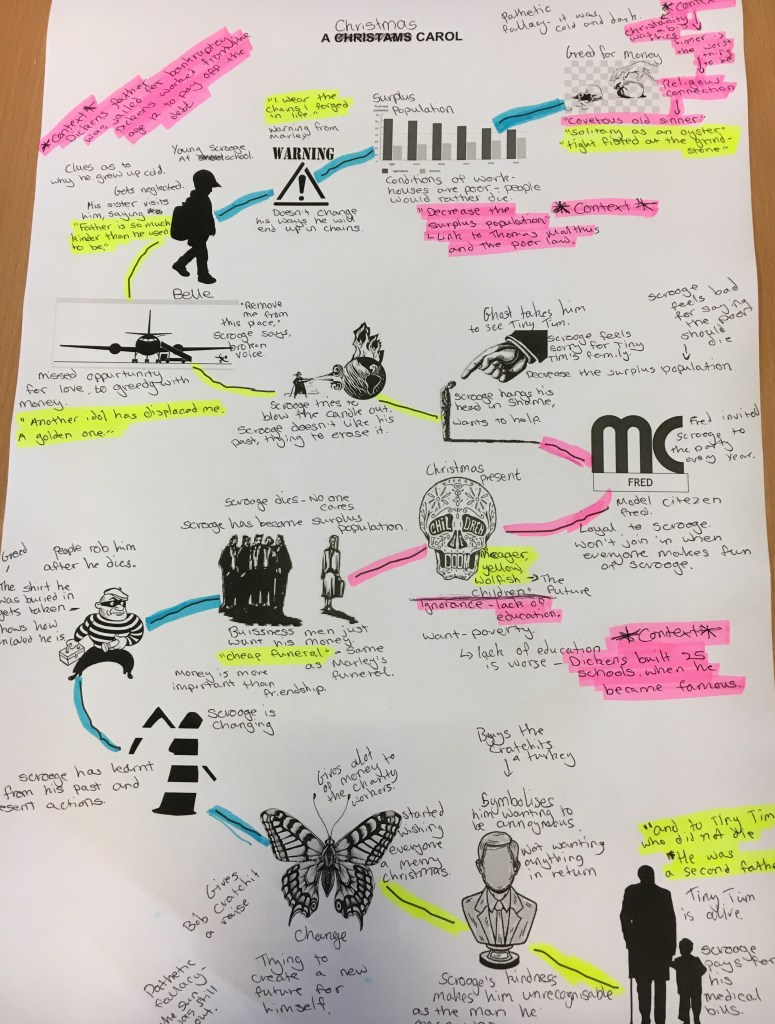 Christmas
A CHRISTAMS CAROL
Pathetic
fallacy - it was
cold and dark.
* Context
christianity
was
sinner is
the worst
thing
to be
Religious
connection
Greed for money
"Covetous old sinner"
"solitary as an oyster"
"tight fisted at the grind-
stone"
*Context*
Dickens father
was jailed for bankruptcy
Dickens worked from the
age 12 to pay off the
debt
"I wear the
chains I forged
in life."
Warning from
Marley
WARNING
Doesn't change
his ways he will
end up in chains.
Surplus
Population
Conditions of work-
houses are poor - people
would rather die.
"Decrease the
surplus population"
Link to Thomas Malthus
and the poor law.
* Context *
Young scrooge
At school.
Clues as to
why he grew up cold.
Gets neglected.
His sister visits
him, saying
"Father is so much
kinder than he used
to be."
Belle
"Remove
me from
this place,"
scrooge says,
broken
voice
missed oppurtunity
for love, to greedy with
money.
"Another idol has displaced me.
A golden one."
Scrooge tries to
blow the candle out.
Scrooge doesn't like his
past, trying to erase it.
Ghost takes him
to see Tiny Tim.
Scrooge feels
sorry for Tiny
Tim's family.
Scrooge hangs his
head in shame,
wants to help
scrooge
feels bad
for saying
the poor
should
die
Decrease the surplus population
mc
FRED
Fred invited
scrooge to
the party
every year.
Model citezen
Fred.
Loyal to scrooge.
won't join in when
everyone makes fun
of scrooge.
Christmas
present
CHILDREN
DOOM
Meager,
yellow
wolfish
children"
The
future
Ignorance - lack of
education.
want - poverty.
lack of education
is worse -
*Context*
Dickens built 25
schools when he
became famous.
scrooge dies - No one
cares
scrooge has become surplus
population.
Buissness men just
want his money.
"cheap funeral" - same
as Marley's
funeral.
Money is more
important than
friendship
Greed
People rob him
after he dies.
The shirt he
was buried in
gets taken -
shows how
he is
Scrooge is
changing
scrooge has learnt
from his past and
present actions.
Gives alot
of money to
the charity
workers.
started
wishing
everyone
a merry
christmas.
Gives
Bob Cratchit
a raise
Change
Trying to
create a new
future for
himself.
Pathetic
fallacy -
the sun
was still
out.
Buys the
Cratchits
a turkey
Symbolises
him wanting to
be annoymous.
Not wanting
anything
in return
Scrooge's kindness
makes him unrecognisable
as the man he
"and to Tiny Tim
who did not die
"He was
a second father
Tiny Tim
is alive.
scrooge
pays for
his
medical
bills.